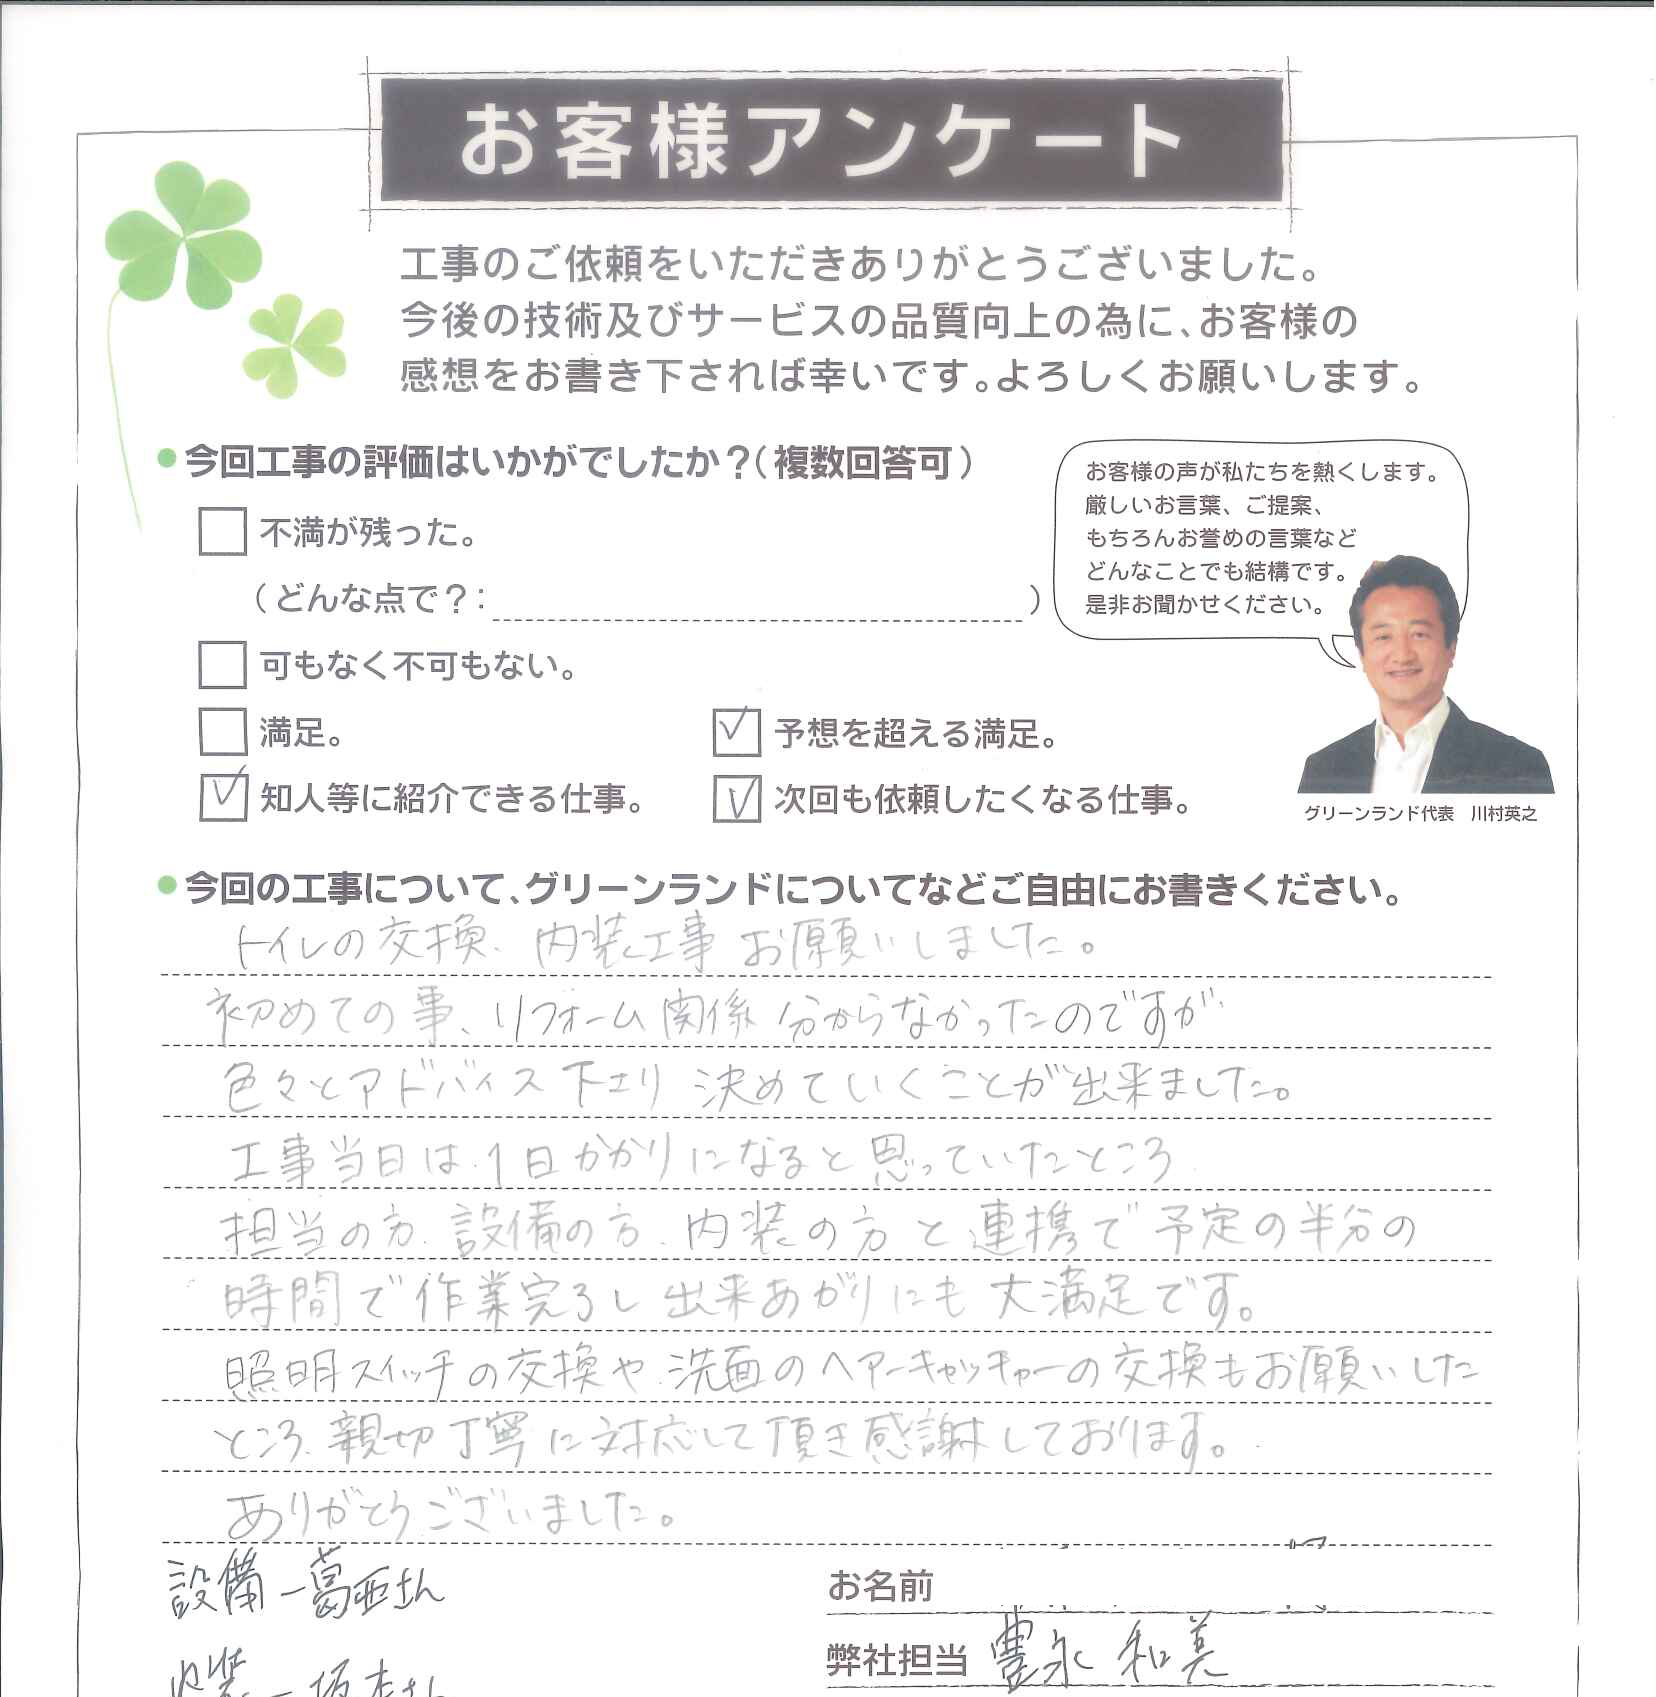 お客様アンケート
工事のご依頼をいただきありがとうございました。
今後の技術及びサービスの品質向上の為に、お客様の
感想をお書き下されば幸いです。よろしくお願いします。
今回工事の評価はいかがでしたか？（複数回答可）
不満が残った。
（どんな点で？： ）
可もなく不可もない。
満足。
予想を超える満足。
知人等に紹介できる仕事。
次回も依頼したくなる仕事。
お客様の声が私たちを熱くします。
厳しいお言葉、ご提案、
もちろんお誉めの言葉など
どんなことでも結構です。
是非お聞かせください。
グリーンランド代表　川村英之
今回の工事について、グリーンランドについてなどご自由にお書きください。
トイレの交換、内装工事 お願いしました。
初めての事、リフォーム関係 分からなかったのですが
色々とアドバイス下さり 決めていくことが出来ました。
工事当日は、1日かかりになると思っていたところ
担当の方、設備の方、内装の方と連携で予定の半分の
時間で作業完了し 出来あがりにも 大満足です。
照明スイッチの交換や、洗面のヘアーキャッチャーの交換もお願いした
ところ、親切丁寧に対応して頂き感謝しております。
ありがとうございました。
設備－葛西さん
内装－坂本さん
お名前
弊社担当 豊永 和美